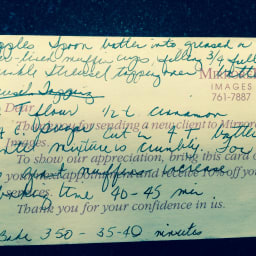 apples Spoon batter into greased or
lined muffin cups, filling 3/4 full
Streusel topping over
Mirror
IMAGES
761-7887
Streusel Topping
Dear
flour 1/2 t. cinnamon
Thank you for sending a new client to Mirror
Images.
cut in butter
mixture is crumbly. For
To show our appreciation, bring this card
giant muffins increase
your next appointment and receive off your
baking time 40-45 min
Thank you for your confidence in us.
Bake 350 - 35-40 minutes